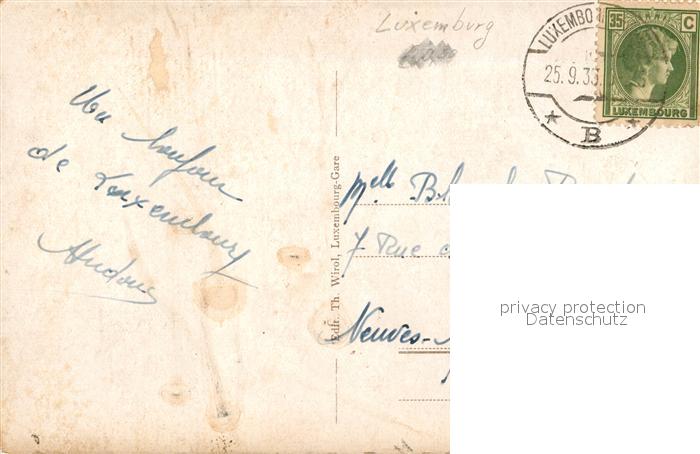 Luxemburg
LUXEMBO
25.9.33
B
35 C
LUXEMBOURG
Un bonjour
de Luxembourg
Edit. Th. Wirol, Luxembourg-Gare
Mlle
7 Rue
Neuves-
privacy protection
Datenschutz